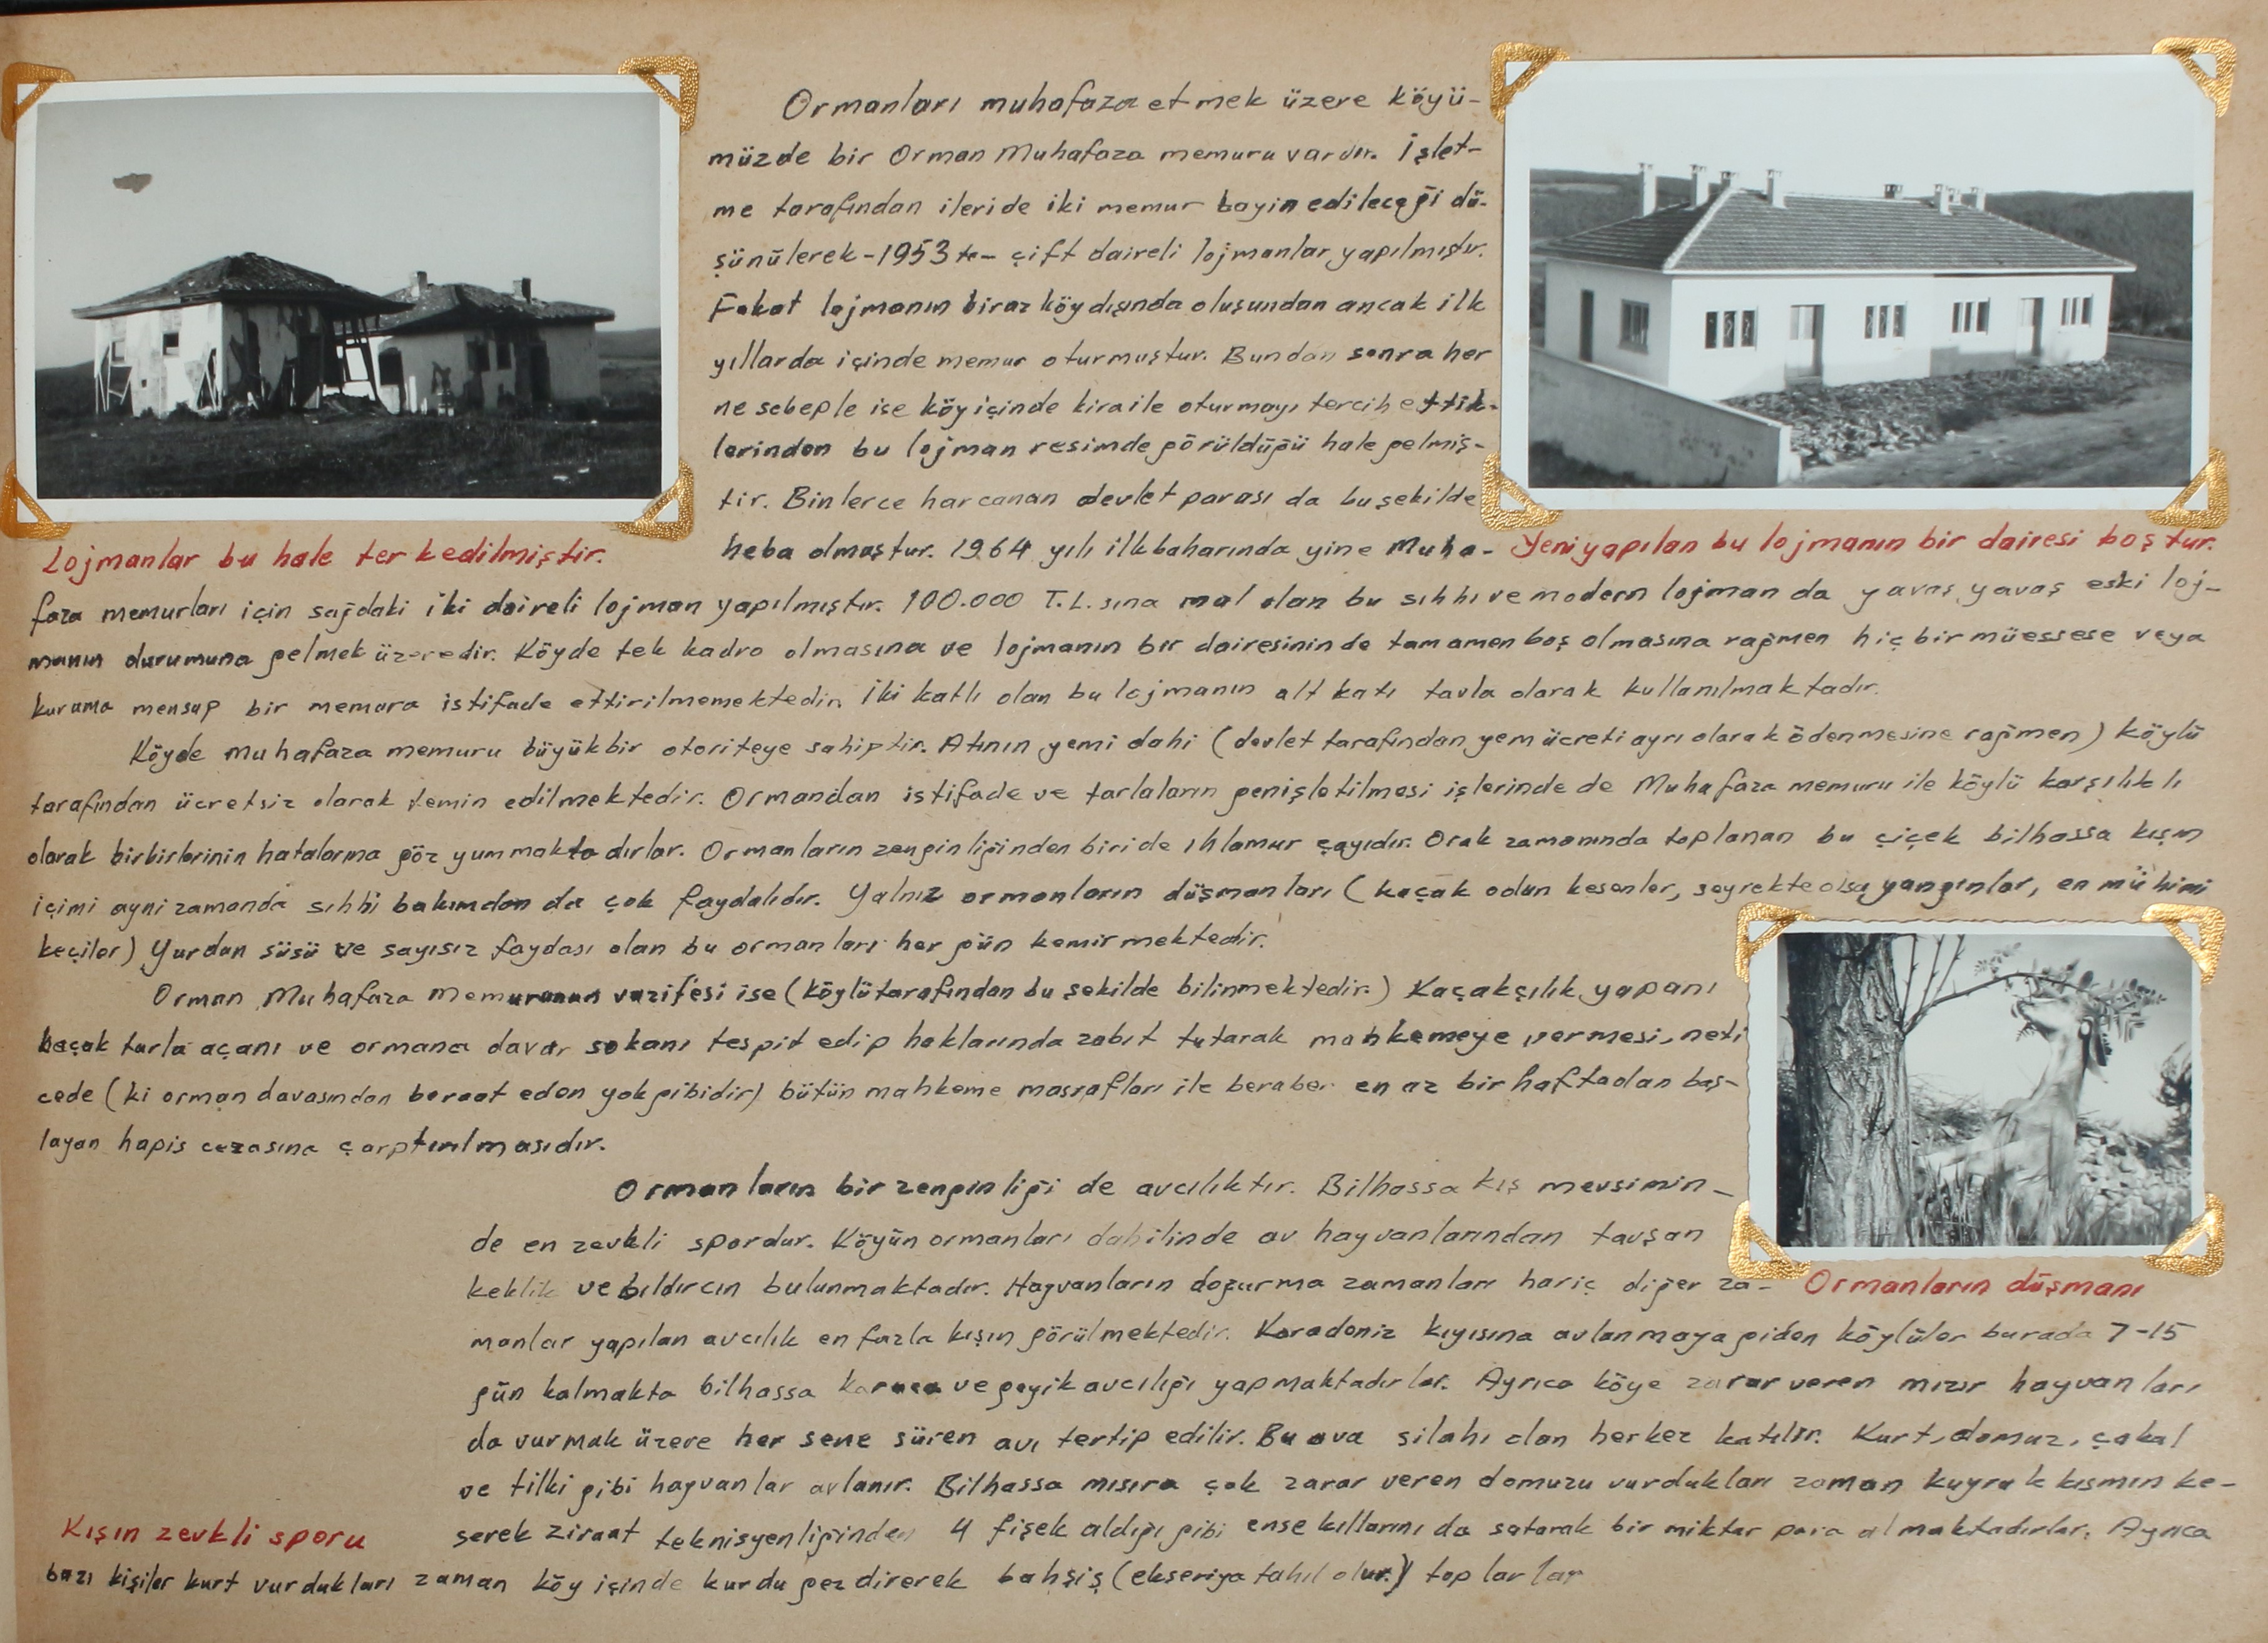 Ormanları muhafaza etmek üzere köyü-
müzde bir Orman Muhafaza memuru vardır. İşlet-
me tarafından ileride iki memur tayin edileceği dü-
şünülerek -1953 te- çift daireli lojmanlar yapılmıştır.
Fakat lojmanın biraz köy dışında oluşundan ancak ilk
yıllarda içinde memur oturmuştur. Bundan sonra her
ne sebeple ise köy içinde kira ile oturmayı tercih ettik-
lerinden bu lojman resimde görüldüğü hale gelmiş-
tir. Binlerce harcanan devlet parası da bu şekilde
Lojmanlar bu hale terkedilmiştir.
heba olmuştur. 1964 yılı ilkbaharında yine Muha-
Yeni yapılan bu lojmanın bir dairesi boştur.
faza memurları için sağdaki iki daireli lojman yapılmıştır. 100.000 T.L. sına mal olan bu sıhhi ve modern lojman da yavaş yavaş eski loj-
manın durumuna gelmek üzeredir. Köyde tek kadro olmasına ve lojmanın bir dairesinin de tamamen boş olmasına rağmen hiç bir müessese veya
kuruma mensup bir memura istifade ettirilmemektedir. İki katlı olan bu lojmanın alt katı tavla olarak kullanılmaktadır.
Köyde muhafaza memuru büyük bir otoriteye sahiptir. Atının yemi dahi (devlet tarafından yem ücreti ayrı olarak ödenmesine rağmen) köylü
tarafından ücretsiz olarak temin edilmektedir. Ormandan istifade ve tarlaların genişletilmesi işlerinde de Muhafaza memuru ile köylü karşılıklı
olarak birbirlerinin hatalarına göz yummaktadırlar. Ormanların zenginliğinden biri de ıhlamur çayıdır. Orak zamanında toplanan bu çiçek bilhassa kışın
içimi ayni zamanda sıhhi bakımdan da çok faydalıdır. Yalnız ormanların düşmanları (kaçak odun kesenler, seyrekte olsa yangınlar, en mühimi
keçiler) Yurdun süsü ve sayısız faydası olan bu ormanları her gün kemirmektedir.
Orman Muhafaza memurunun vazifesi ise (köylü tarafından bu şekilde bilinmektedir.) Kaçakçılık yapanı
kaçak tarla açanı ve ormana davar sokanı tespit edip haklarında zabıt tutarak mahkemeye vermesi, neti
cede (ki orman davasından beraat eden yok gibidir) bütün mahkeme masrafları ile beraber en az bir haftadan baş-
layan hapis cezasına çarptırılmasıdır.
Ormanların bir zenginliği de avcılıktır. Bilhassa kış mevsimin-
de en zevkli spordur. Köyün ormanları dahilinde av hayvanlarından tavşan
keklik ve bıldırcın bulunmaktadır. Hayvanların doğurma zamanları hariç diğer za-
Ormanların düşmanı
manlar yapılan avcılık en fazla kışın görülmektedir. Karadeniz kıyısına avlanmaya giden köylüler burada 7-15
gün kalmakta bilhassa karaca ve geyik avcılığı yapmaktadırlar. Ayrıca köye zarar veren mızır hayvanları
da vurmak üzere her sene süren avı tertip edilir. Bu ava silahı olan herkez katılır. Kurt, domuz, çakal
ve tilki gibi hayvanlar avlanır. Bilhassa mısıra çok zarar veren domuzu vurdukları zaman kuyruk kısmın ke-
Kışın zevkli sporu
serek ziraat teknisyenliğinden 4 fişek aldığı gibi ense kıllarını da satarak bir miktar para almaktadırlar. Ayrıca
bazı kişiler kurt vurdukları zaman köy içinde kurdu gezdirerek bahşiş (ekseriya tahıl olur.) toplarlar